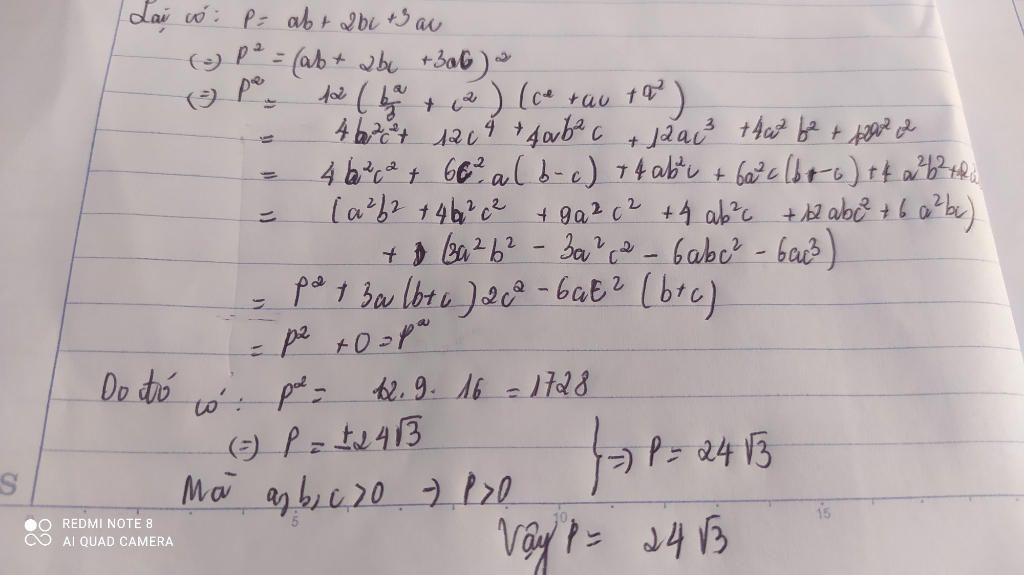 Lại có: P = ab + 2bc + 3ac
(=) P² = (ab + 2bc + 3ac)²
(=) P² = 12 (b²/3 + c²) (c² + ac + a²)
= 4b²c² + 12c⁴ + 4ab²c + 12ac³ + 4a²b² + 12a²c²
= 4b²c² + 6c².a(b-c) + 4ab²c + 6a²c(b-c) + 4a²b² + 12a
= (a²b² + 4b²c² + 9a²c² + 4ab²c + 12abc² + 6a²bc)
+ (3a²b² - 3a²c² - 6abc² - 6ac³)
= P² + 3a(b+c)2c² - 6ac² (b+c)
= P² + 0 = P²
Do đó có: P² = 12.9.16 = 1728
(=) P = ±24√3
Mà a,b,c>0 => P>0 } => P = 24√3
Vậy P = 24√3
S
5 10 15
REDMI NOTE 8
AI QUAD CAMERA